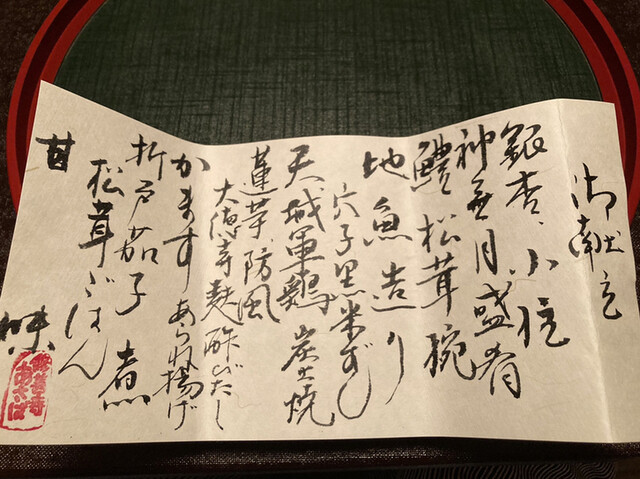 御献立
銀杏、小柱
神無月盛肴
鱧松茸椀
地魚造り
穴子黒米ずし
天城軍鶏炭火焼
蓮芋、防風
大徳寺麩酢びたし
かますあられ揚げ
折戸茄子煮
松茸ごはん
甘味
修善寺
あさば